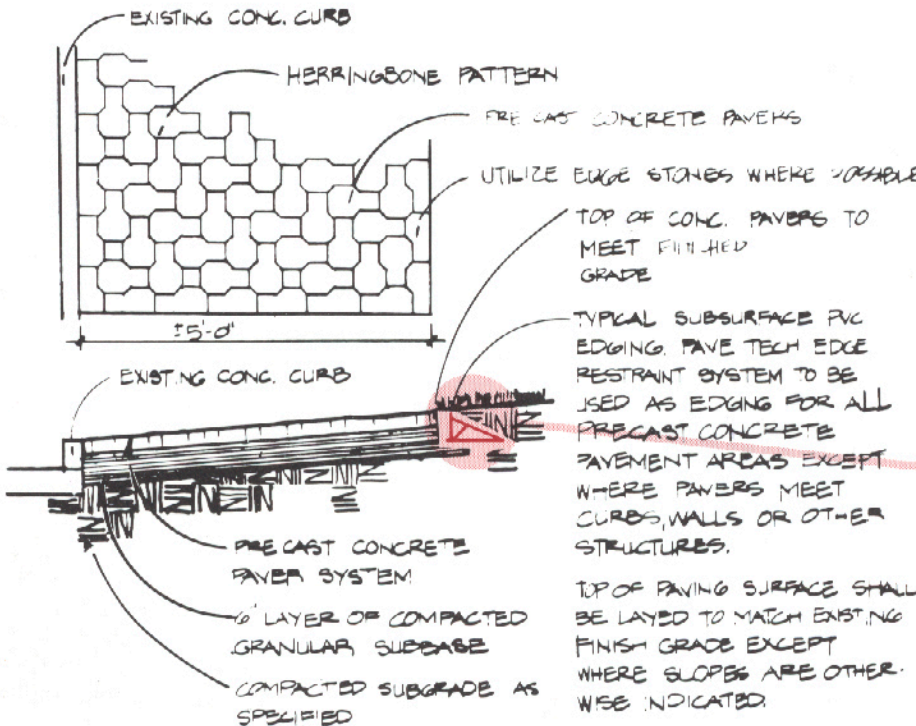 EXISTING CONC. CURB
HERRINGBONE PATTERN
PRECAST CONCRETE PAVERS
UTILIZE EDGE STONES WHERE POSSIBLE
TOP OF CONC. PAVERS TO
MEET FINISHED
GRADE
±5'-0"
TYPICAL SUBSURFACE PVC
EDGING. PAVE TECH EDGE
RESTRAINT SYSTEM TO BE
USED AS EDGING FOR ALL
PRECAST CONCRETE
PAVEMENT AREAS EXCEPT
WHERE PAVERS MEET
CURBS, WALLS OR OTHER
STRUCTURES.
EXISTING CONC. CURB
PRECAST CONCRETE
PAVER SYSTEM
6" LAYER OF COMPACTED
GRANULAR SUBBASE
COMPACTED SUBGRADE AS
SPECIFIED
TOP OF PAVING SURFACE SHALL
BE LAYED TO MATCH EXISTING
FINISH GRADE EXCEPT
WHERE SLOPES ARE OTHER-
WISE INDICATED.